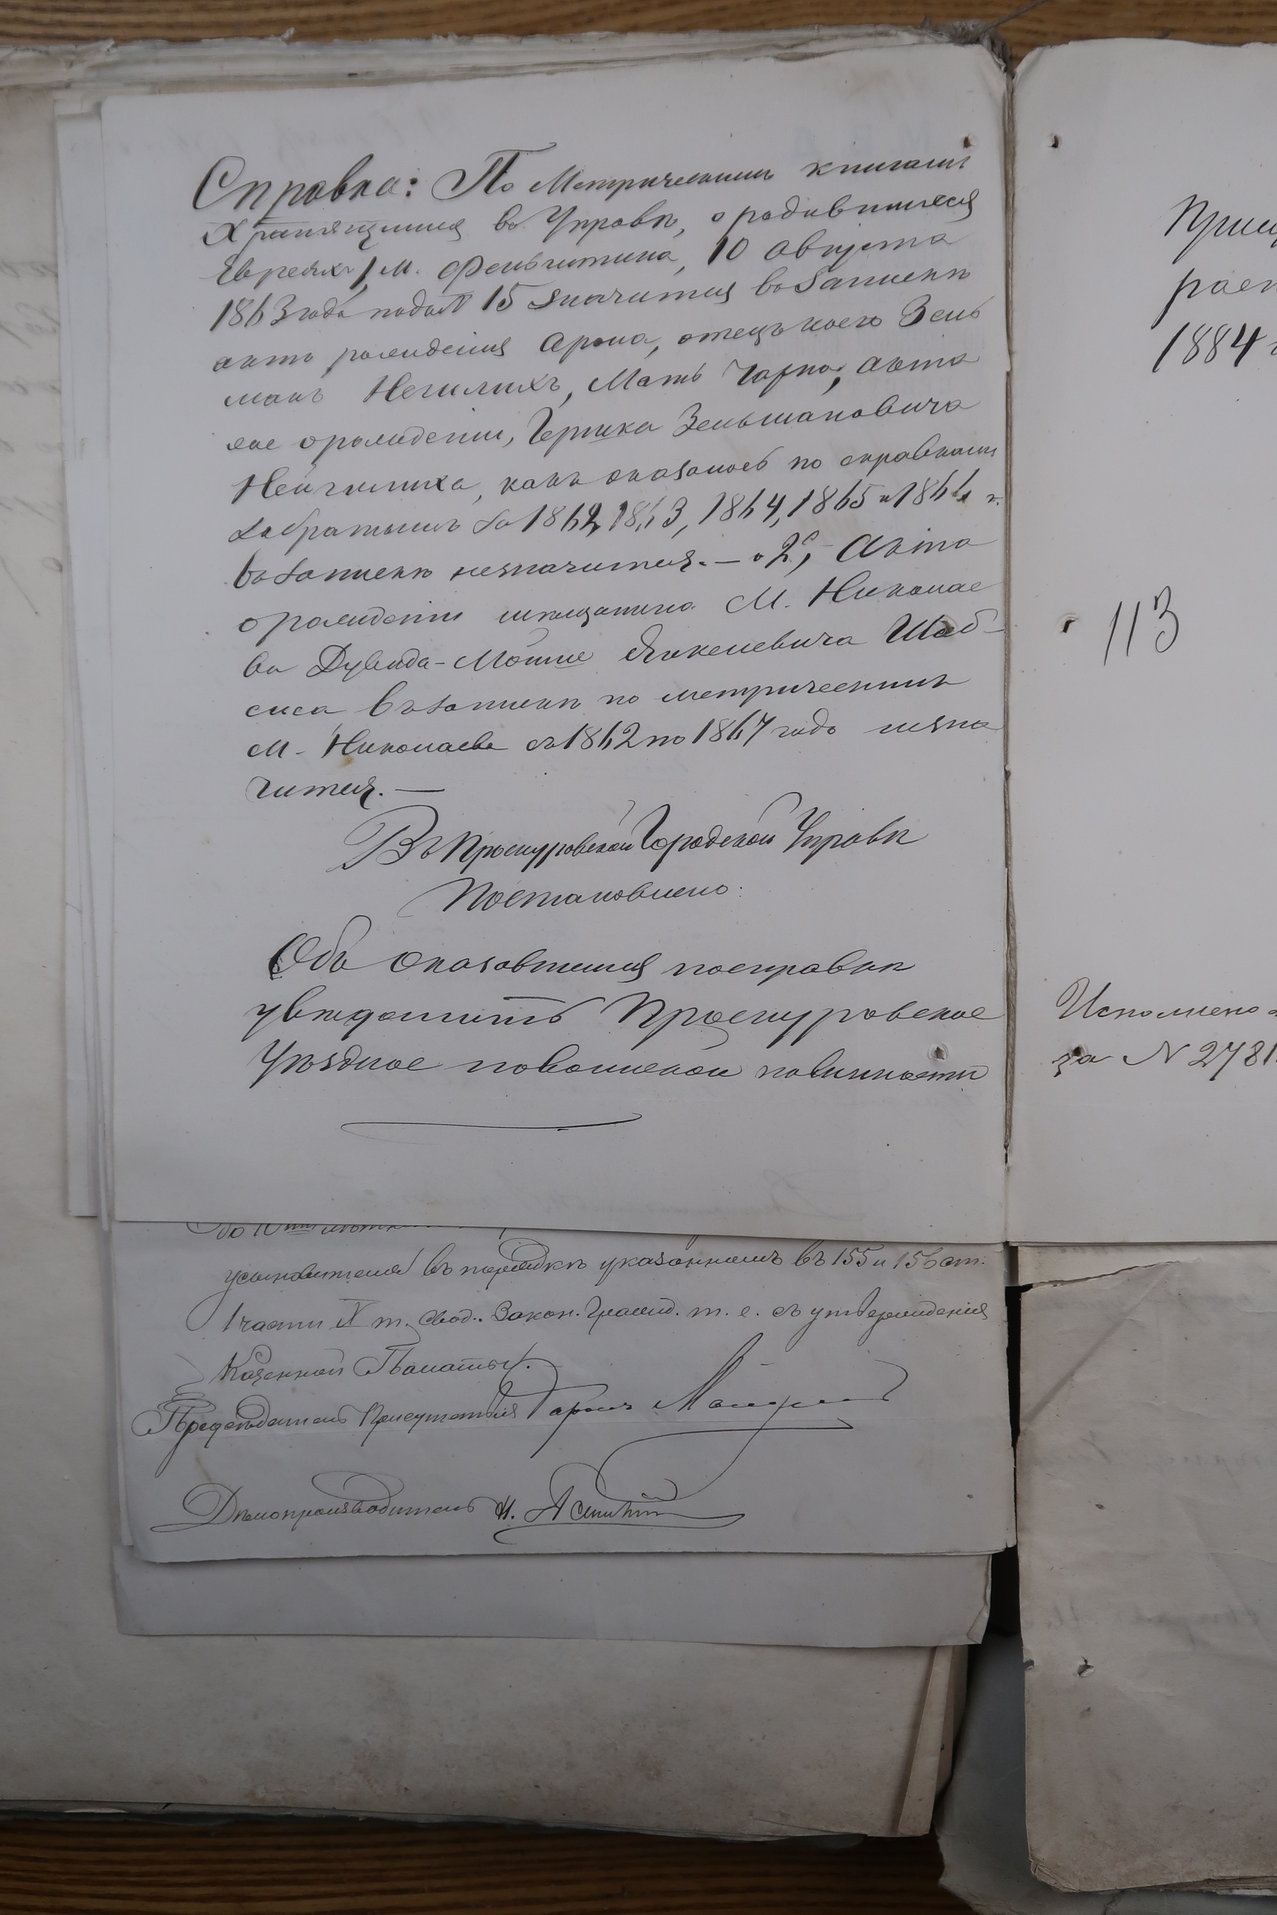 Справка: По Метрическимъ книгамъ
Хранящимся въ Управѣ, о родившихся
Евреяхъ, 1, М. Фельштина, 10 Августа
1863 года подъ № 15 значится въ запискѣ
актъ рожденія Арона, отецъ коего Зель
манъ, Мать Чарна, акта
же о рожденіи, Гершка Зельмановича
какъ оказалось по справкамъ
за 1862, 1863, 1864, 1865 и 1866 г.
въ запискѣ незначится. — и 2е, Акта
о рожденіи мѣщанина М. Николае
ва Дувида-Мошке Янкелевича Шаб-
сиса въ запискѣ по метрическимъ
М. Николаева съ 1862 по 1867 годъ незна
чится. —
Въ Проскуровской Городской Управѣ
Постановлено:
Объ оказавшемся посправкѣ
увѣдомить Проскуровское
Уѣздное повоинской повинности
усыновителей въ порядкѣ указанномъ въ 155 и 156 ст.
1 части X т. Свод. Закон. Гражд. т. е. съ утвержденія
Казенной Палаты.
Предсѣдатель Присутствія
Дѣлопроизводитель И.
1884 г
113
Исполнено
за N 2781